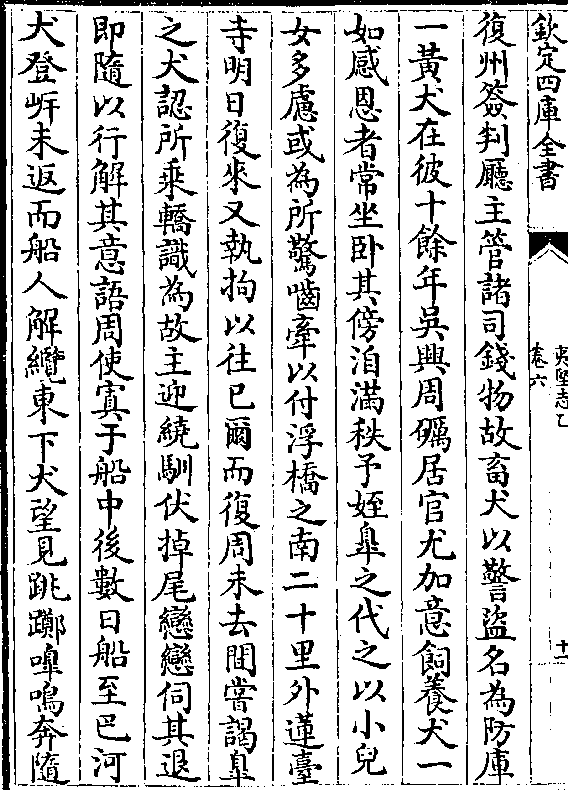 欽定四庫全書
夷堅志乙
卷六
十一
復州簽判廳主管諸司錢物故畜犬以警盜名為防庫
一黃犬在彼十餘年吳興周礪居官尤加意飼養犬一
如感恩者常坐卧其傍洎滿秩予姪臯之代之以小兒
女多慮或為所驚嚙牽以付浮橋之南二十里外蓮臺
寺明日復來又執拘以往已爾而復周未去閒嘗謁臯
之犬認所乗轎識為故主迎繞馴伏掉尾戀戀伺其退
即隨以行解其意語周使寘于船中後數日船至巴河
犬登岸未返而船人解纜東下犬望見跳躑嘷嗚奔隨